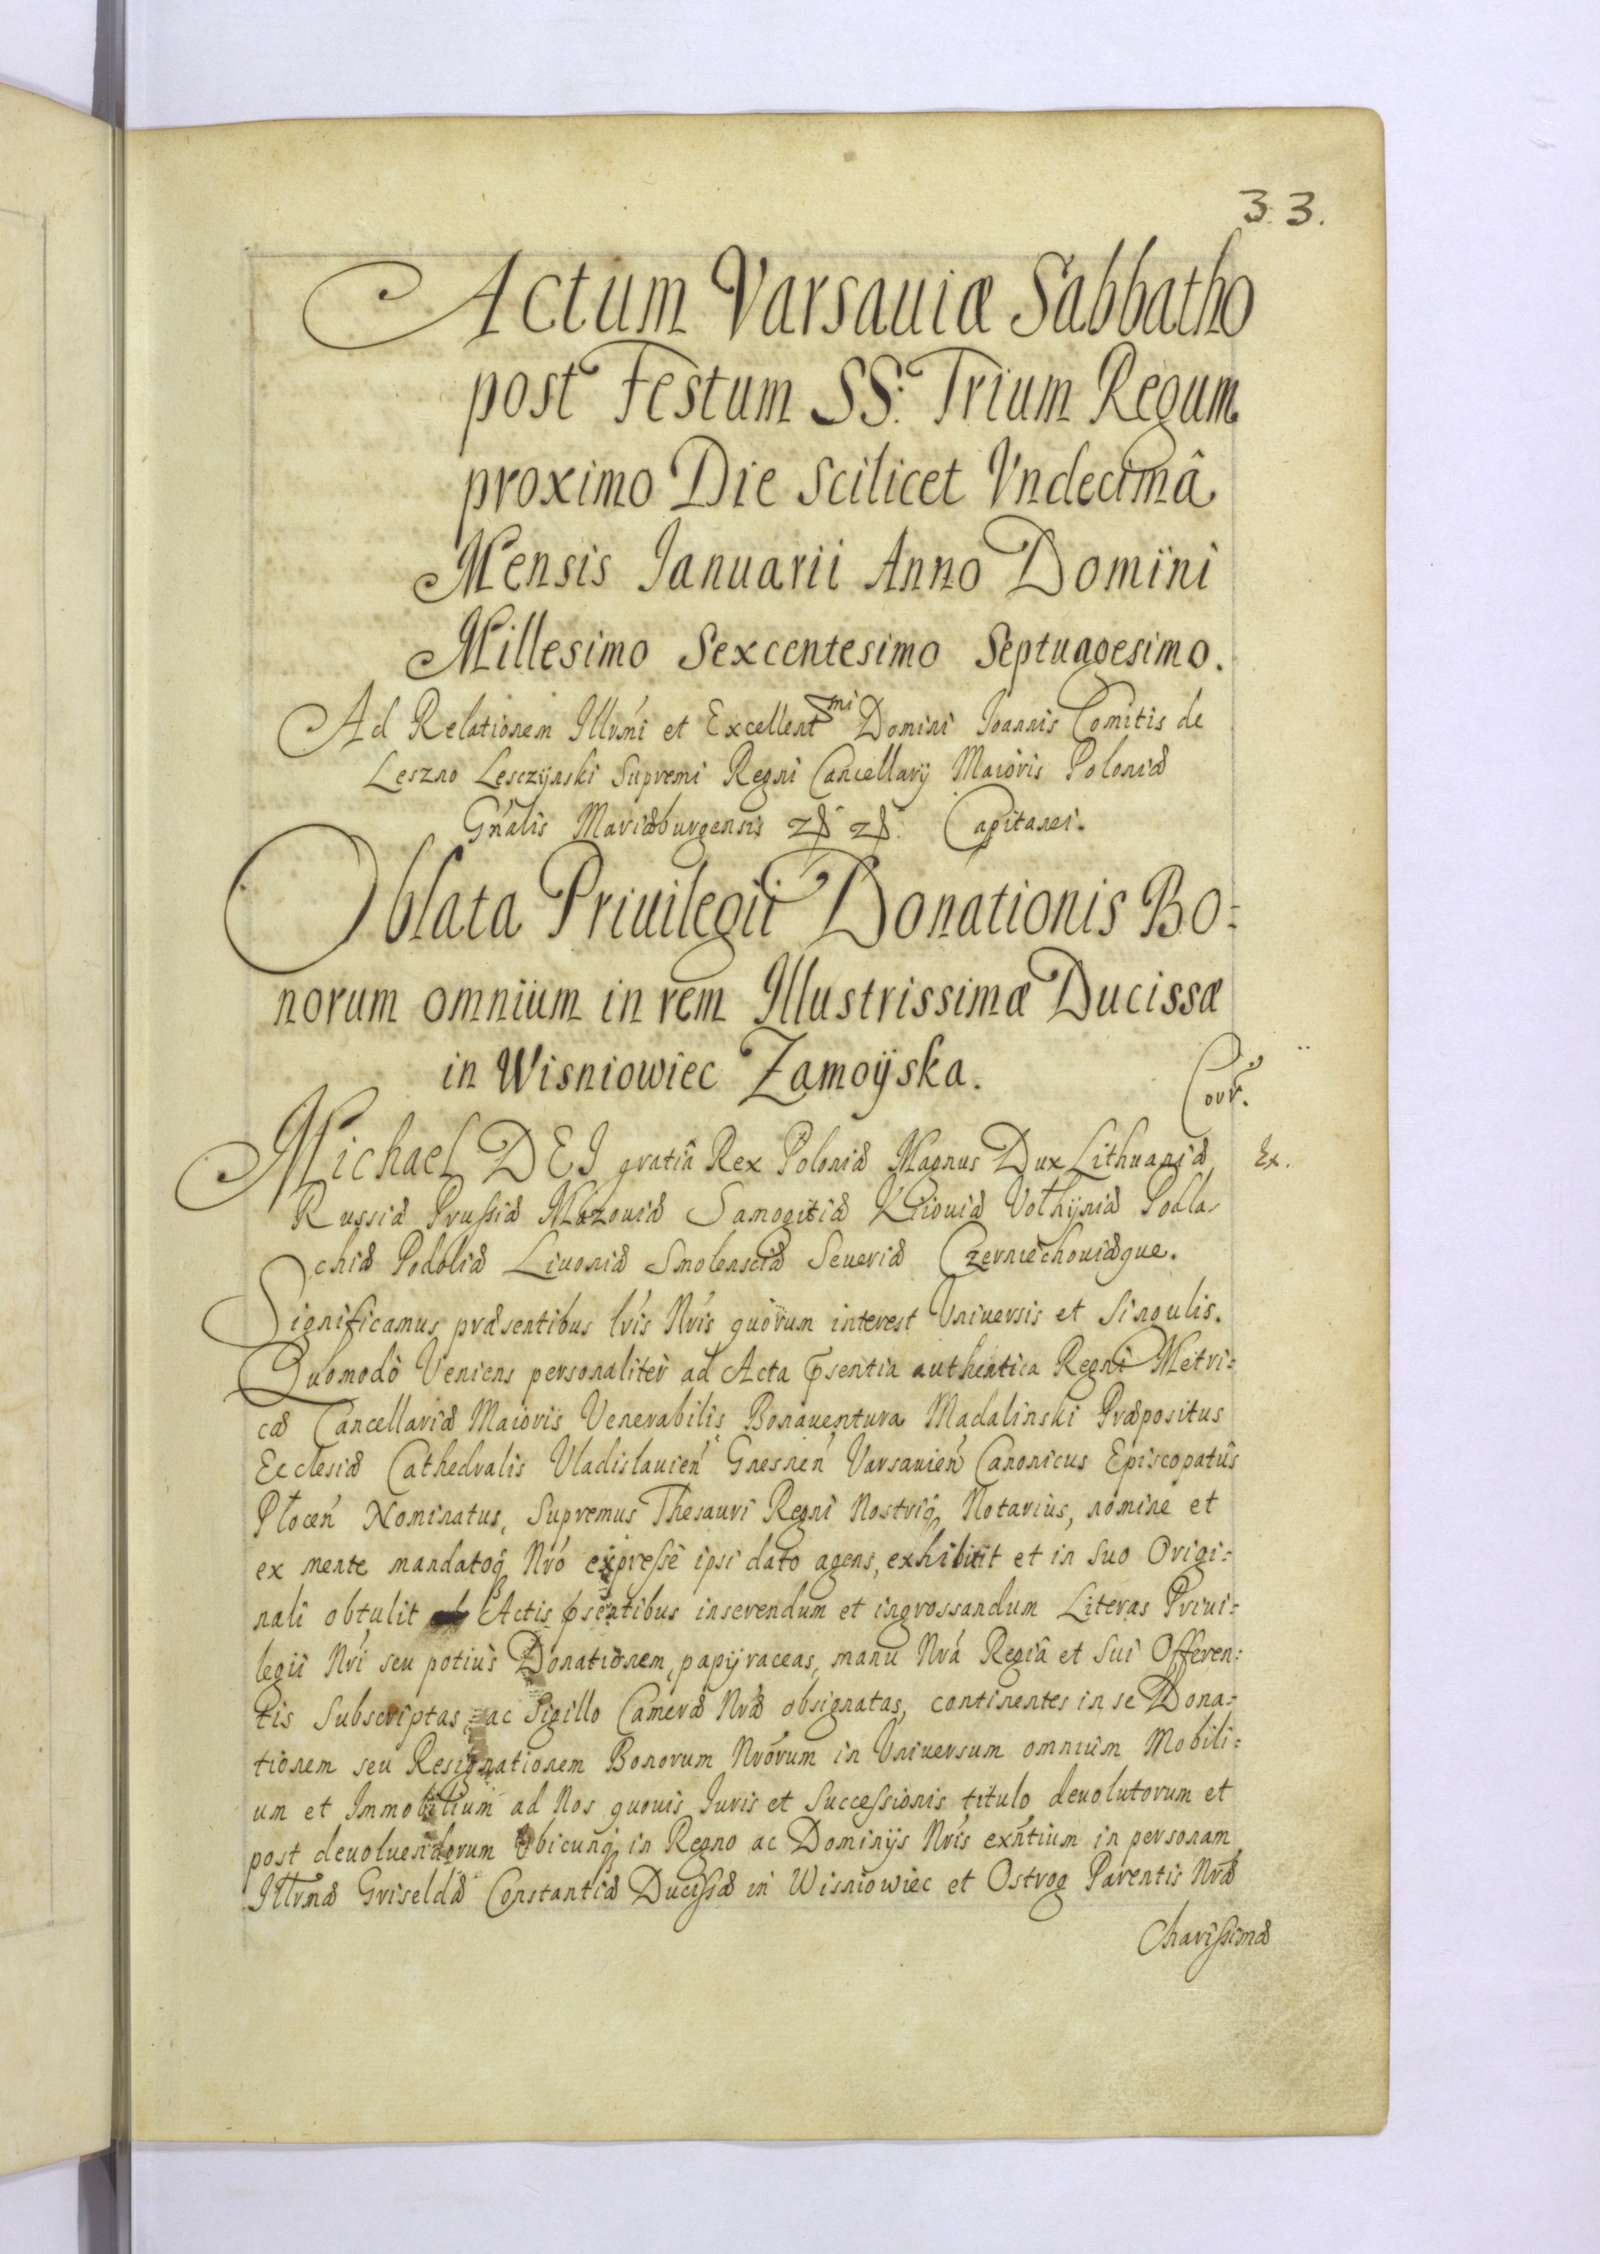 33.
Actum Varsauiæ Sabbatho
post Festum SS: Trium Regum
proximo Die scilicet Vndecimâ
Mensis Ianuarii Anno Domini
Millesimo Sexcentesimo Septuagesimo.
Ad Relationem Illr̃mi et Excellent^mi Domini Ioannis Comitis de
Leszno Lesczÿnski Supremi Regni Cancellarÿ Maioris Poloniæ
Gn̄alis Mariæburgensis Capitanei.
Oblata Priuilegii Donationis Bo=
norum omnium in rem Illustrissimæ Ducissæ
in Wisniowiec Zamoÿska.
Corr.
Michael DEI gratiâ Rex Poloniæ Magnus Dux Lithuaniæ,
Ex.
Russiæ Prussiæ Mazouiæ Samogitiæ Kiiouiæ Volhÿniæ Podla,
chiæ Podoliæ Liuoniæ Smolensciæ Seueriæ Czerniechouiæque.
Significamus præsentibus lr̃is Nr̃is quorum interest Vniuersis et Singulis.
Quomodò Veniens personaliter ad Acta p̄sentia authentica Regni Metri=
cæ Cancellariæ Maioris Venerabilis Bonauentura Madalinski Præpositus
Ecclesiæ Cathedralis Vladislauien̄ Gnesnen̄ Varsauien̄ Canonicus Episcopatûs
Plocen̄ Nominatus, Supremus Thesauri Regni Nostriq̃ Notarius, nomine et
ex mente mandatoq̃ Nr̃o expressè ipsi dato agens, exhibuit et in suo Origi=
nali obtulit Actis p̄sentibus inserendum et ingrossandum Literas Priui=
legii Nr̃i seu potiùs Donationem, papÿraceas, manu Nr̃a Regiâ et sui Offeren=
tis Subscriptas, ac Sigillo Cameræ Nr̃æ obsignatas, continentes in se Dona=
tionem seu Resignationem Bonorum Nr̃orum in Vniuersum omnium Mobili=
um et Immobilium ad Nos quouis Iuris et Successionis titulo deuolutorum et
post deuoluendorum Vbicunq̃ in Regno ac Dominÿs Nr̃is exn̄tium in personam
Illr̃mæ Griseldæ Constantiæ Ducissæ in Wisniowiec et Ostrog Parentis Nr̃æ
Charissimæ